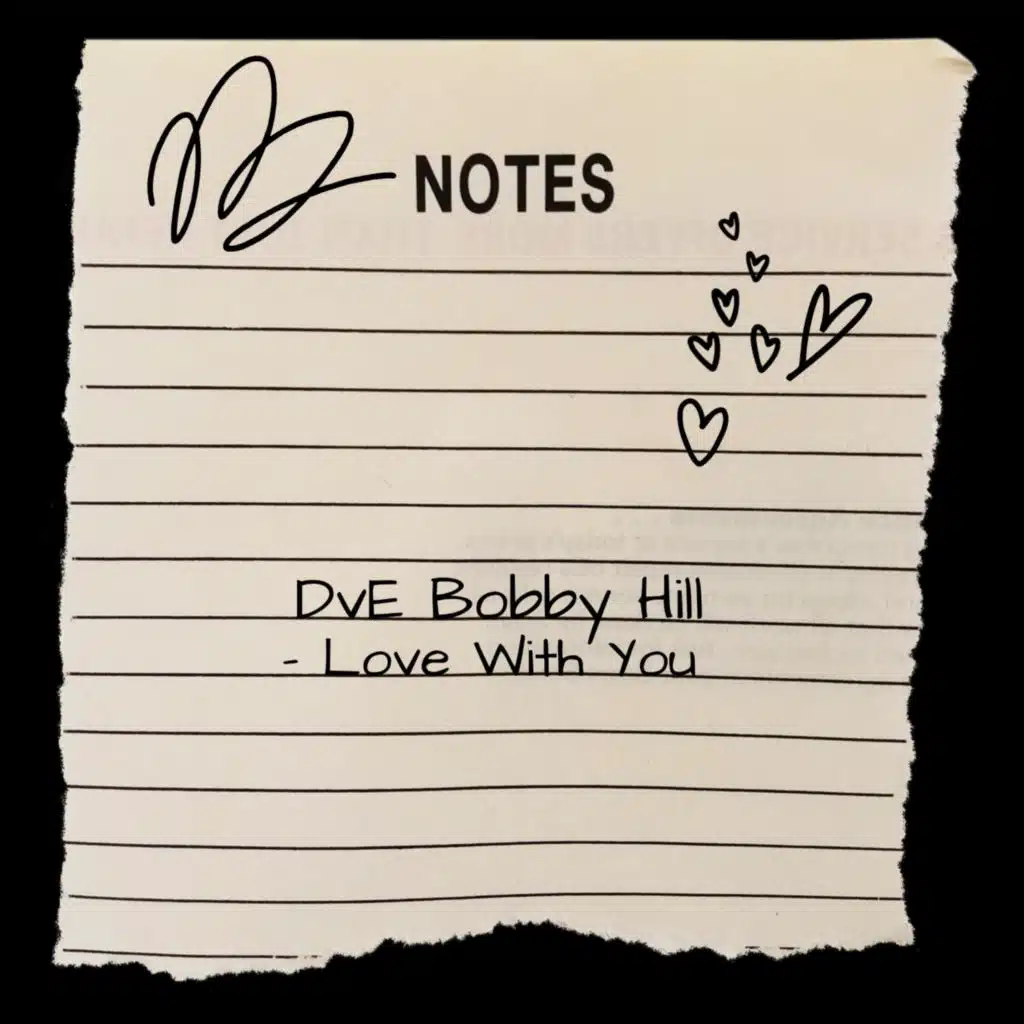 NOTES
DvE Bobby Hill
- Love With You